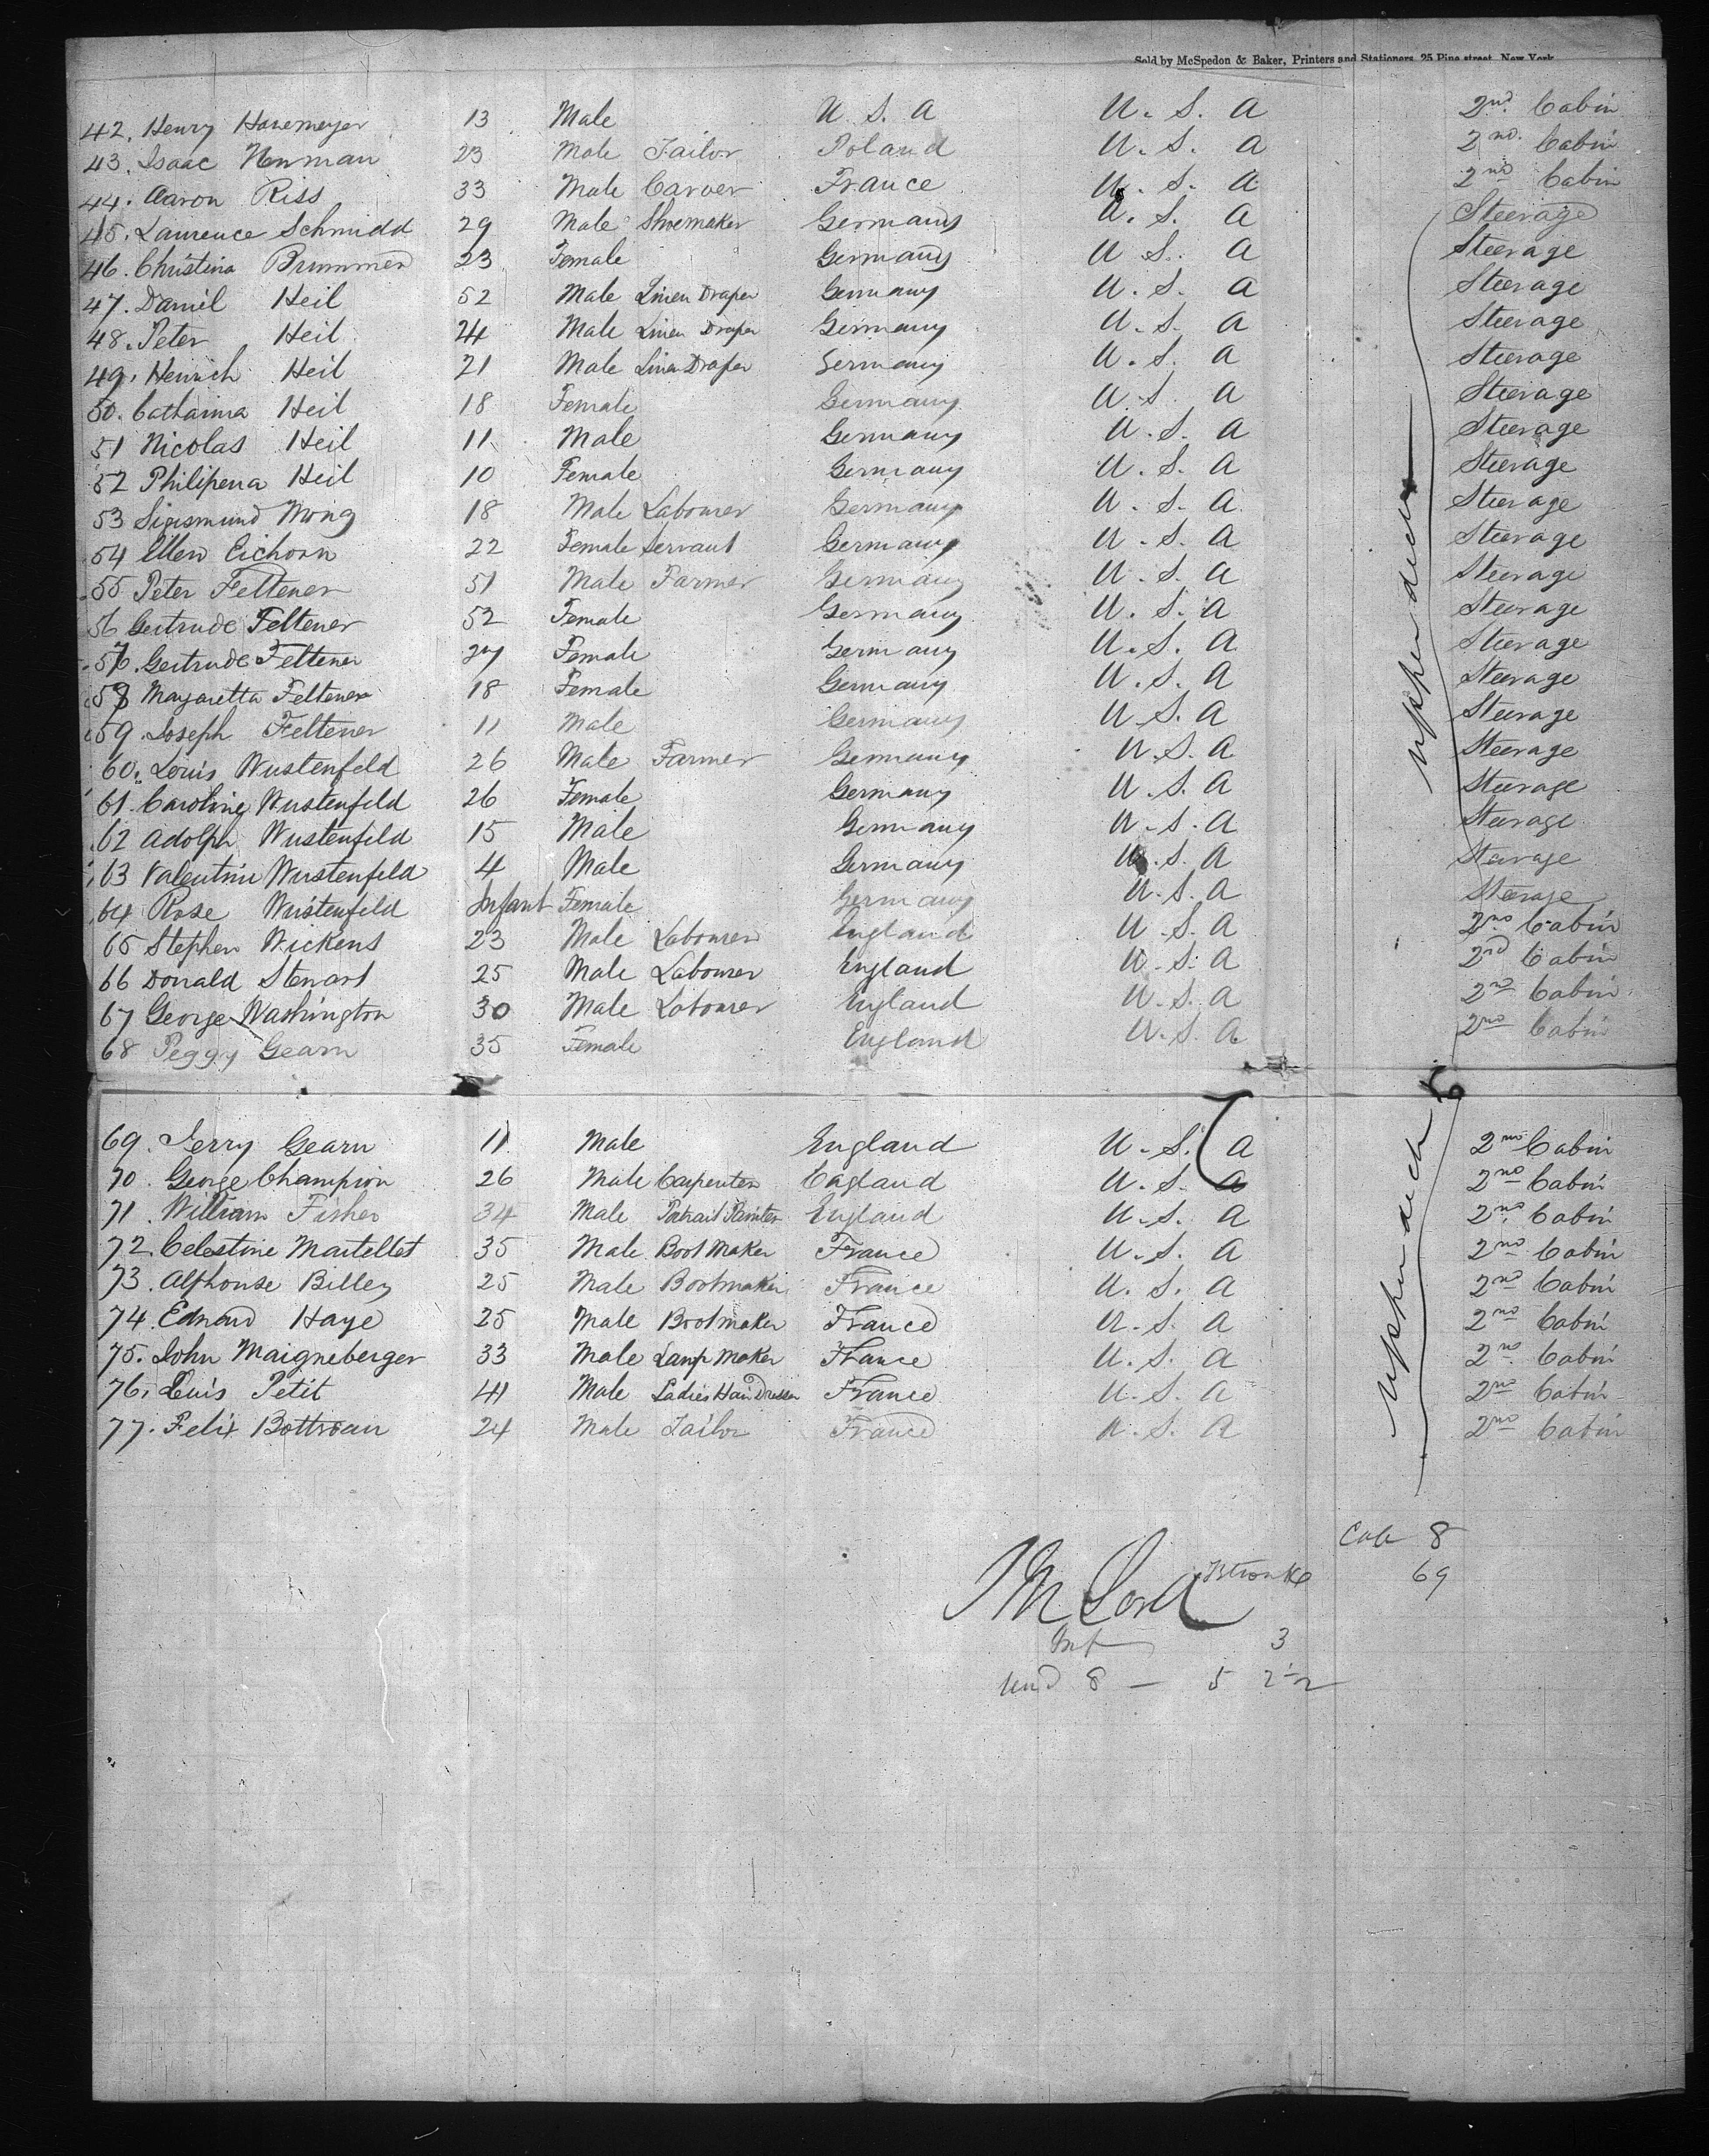 Sold by McSpedon & Baker, Printers and Stationers, 25 Pine street, New York
42. Henry Havemeyer 13 Male U. S. A U. S. A 2nd Cabin
43. Isaac Newman 23 Male Tailor Poland U. S. A 2nd Cabin
44. Aaron Riss 33 Male Carver France U. S. A 2nd Cabin
45. Laurence Schmidd 29 Male Shoemaker Germany U. S. A Steerage
46. Christina Brummer 23 Female Germany U. S. A Steerage
47. Daniel Heil 52 Male Linen Draper Germany U. S. A Steerage
48. Peter Heil 24 Male Linen Draper Germany U. S. A Steerage
49. Henrich Heil 21 Male Linen Draper Germany U. S. A Steerage
50. Catharina Heil 18 Female Germany U. S. A Steerage
51 Nicolas Heil 11 Male Germany U. S. A Steerage
52 Philipena Heil 10 Female Germany U. S. A Steerage
53 Sigismund Wong 18 Male Labourer Germany U. S. A Steerage
54 Ellen Eichorn 22 Female Servant Germany U. S. A Steerage
55 Peter Feltener 51 Male Farmer Germany U. S. A Steerage
56 Gertrude Feltener 52 Female Germany U. S. A Steerage
57. Gertrude Feltener Female Germany U. S. A Steerage
58 Margaretta Feltener 18 Female Germany U. S. A Steerage
59. Joseph Feltener 11 Male Germany U. S. A Steerage
60. Louis Wustenfeld 26 Male Farmer Germany U. S. A Steerage
61. Caroline Wustenfeld 26 Female Germany U. S. A Steerage
62 Adolph Wustenfeld 15 Male Germany U. S. A Steerage
63 Valentine Wustenfeld 4 Male Germany U. S. A Steerage
64 Rose Wustenfeld Infant Female Germany U. S. A Steerage
65 Stephen Wickens 23 Male Labourer England U. S. A 2nd Cabin
66 Donald Stewart 25 Male Labourer England U. S. A 2nd Cabin
67 George Washington 30 Male Labourer England U. S. A 2nd Cabin
68 Peggy Gearn 35 Female England U. S. A 2nd Cabin
upper deck
69. Jerry Gearn 11 Male England U. S. A 2nd Cabin
70. George Champion 26 Male Carpenter England U. S. A 2nd Cabin
71. William Fisher 34 Male Portrait Painter England U. S. A 2nd Cabin
72. Celestine Martellet 35 Male Boot Maker France U. S. A 2nd Cabin
73. Alphonse Billey 25 Male Bootmaker France U. S. A 2nd Cabin
74. Edward Haye 25 Male Bootmaker France U. S. A 2nd Cabin
75. John Maigneberger 33 Male Lamp Maker France U. S. A 2nd Cabin
76. Luis Petit 41 Male Ladies Hair Dresser France U. S. A 2nd Cabin
77. Felix Bottroan 24 Male Tailor France U. S. A 2nd Cabin
upper deck
Cab 8
69
Inf 3
Und 8 — 5